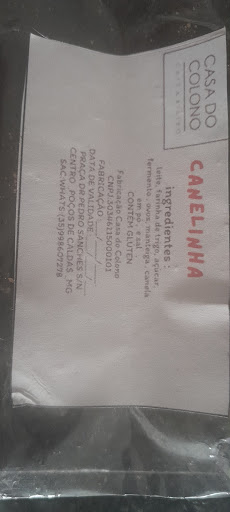 CASA DO
COLONO
CANELINHA
ingredientes:
leite, farinha de trigo, açúcar,
fermento, ovos, manteiga, canela
em pó, e sal.
CONTÉM GLUTEN
Fabricação Casa do Colono
CNPJ 30346115000103
FABRICAÇÃO: __/__/__
DATA DE VALIDADE: __/__/__
PRAÇA DR PEDRO SANCHES S/N
CENTRO POÇOS DE CALDAS MG
SAC.WHATS: (35)998609278